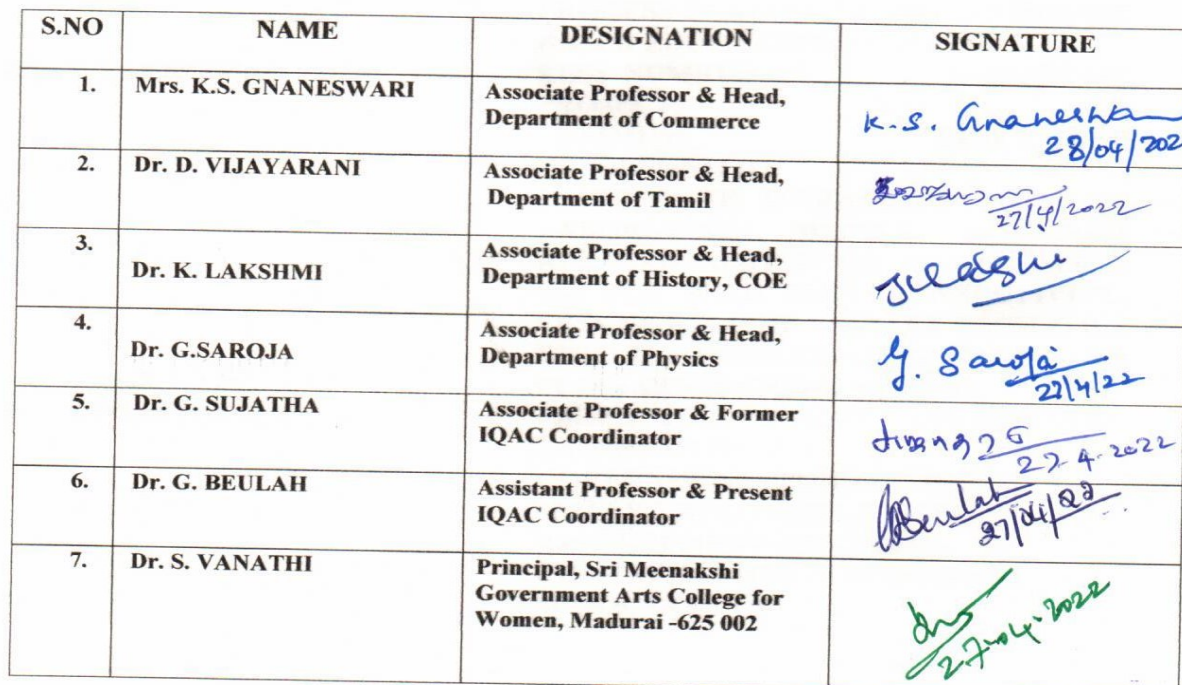 S.NO NAME DESIGNATION SIGNATURE
1. Mrs. K.S. GNANESWARI Associate Professor & Head,
Department of Commerce
K.S. Gnaneswari
28/04/202
2. Dr. D. VIJAYARANI Associate Professor & Head,
Department of Tamil
27/4/2022
3. Dr. K. LAKSHMI Associate Professor & Head,
Department of History, COE
4. Dr. G.SAROJA Associate Professor & Head,
Department of Physics
G. Saroja
27/4/22
5. Dr. G. SUJATHA Associate Professor & Former
IQAC Coordinator
27-4-2022
6. Dr. G. BEULAH Assistant Professor & Present
IQAC Coordinator
Beulah
27/04/22
7. Dr. S. VANATHI Principal, Sri Meenakshi
Government Arts College for
Women, Madurai -625 002
27-04-2022